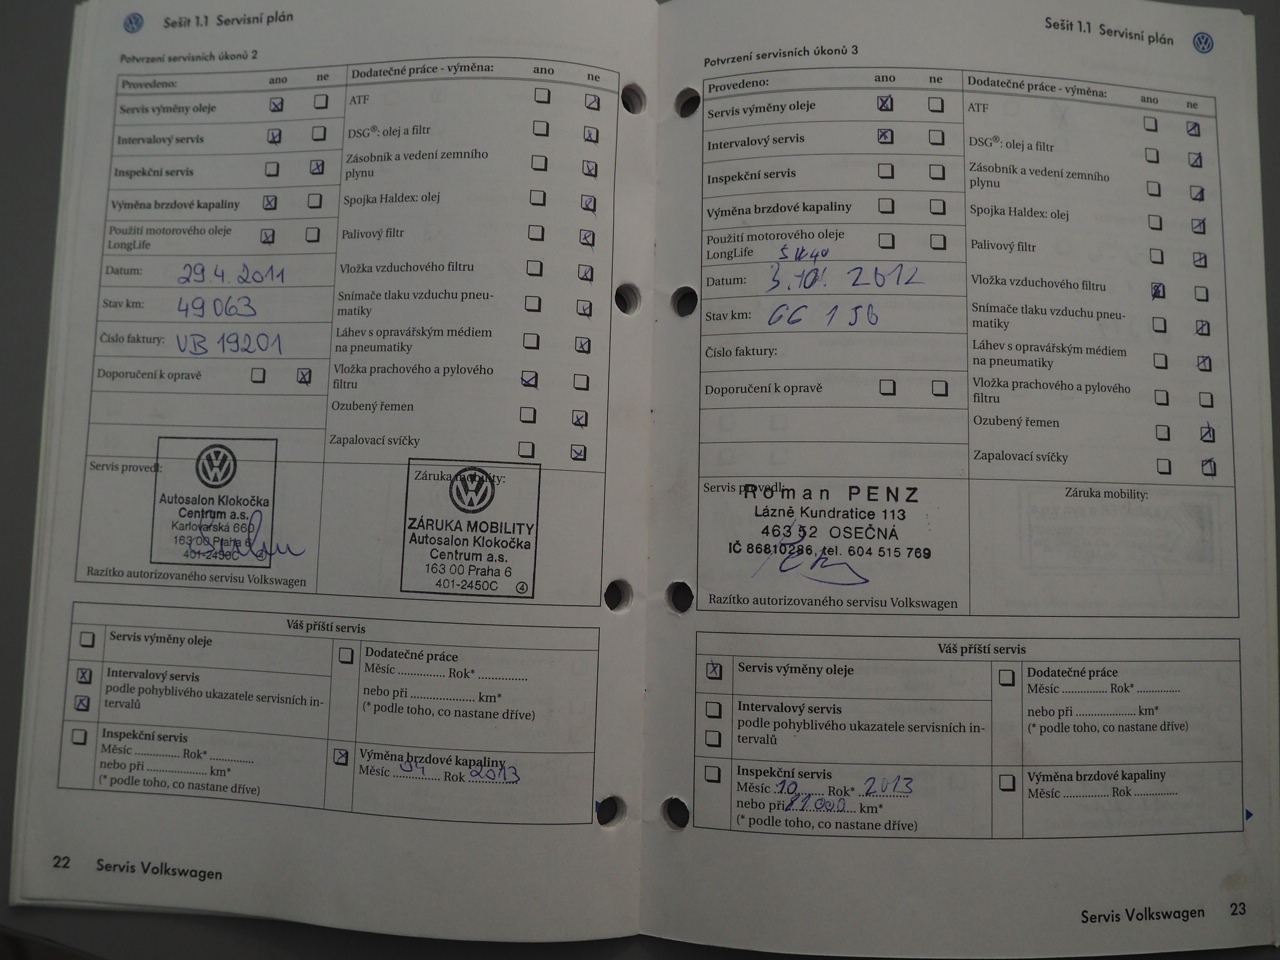 Sešit 1.1 Servisní plán
Potvrzení servisních úkonů 2
Provedeno: ano ne
Servis výměny oleje
Intervalový servis
Inspekční servis
Výměna brzdové kapaliny
Použití motorového oleje
LongLife
Datum: 29.4.2011
Stav km: 49063
Číslo faktury: VB 19201
Doporučení k opravě
Dodatečné práce - výměna: ano ne
ATF
DSG®: olej a filtr
Zásobník a vedení zemního
plynu
Spojka Haldex: olej
Palivový filtr
Vložka vzduchového filtru
Snímače tlaku vzduchu pneu-
matiky
Láhev s opravářským médiem
na pneumatiky
Vložka prachového a pylového
filtru
Ozubený řemen
Zapalovací svíčky
Servis provedl:
Autosalon Klokočka
Centrum a.s.
Karlovarská 660
163 00 Praha 6
401-2450C 4
Razítko autorizovaného servisu Volkswagen
Záruka mobility:
ZÁRUKA MOBILITY
Autosalon Klokočka
Centrum a.s.
163 00 Praha 6
401-2450C 4
Váš příští servis
Servis výměny oleje
Intervalový servis
podle pohyblivého ukazatele servisních in-
tervalů
Inspekční servis
Měsíc .............. Rok* .............
nebo při .................. km*
(* podle toho, co nastane dříve)
Dodatečné práce
Měsíc .............. Rok* ...............
nebo při ................... km*
(* podle toho, co nastane dříve)
Výměna brzdové kapaliny
Měsíc 04 Rok 2013
22 Servis Volkswagen
Sešit 1.1 Servisní plán
Potvrzení servisních úkonů 3
Provedeno: ano ne
Servis výměny oleje
Intervalový servis
Inspekční servis
Výměna brzdové kapaliny
Použití motorového oleje
LongLife 5W40
Datum: 3.10. 2012
Stav km: 66 156
Číslo faktury:
Doporučení k opravě
Dodatečné práce - výměna: ano ne
ATF
DSG®: olej a filtr
Zásobník a vedení zemního
plynu
Spojka Haldex: olej
Palivový filtr
Vložka vzduchového filtru
Snímače tlaku vzduchu pneu-
matiky
Láhev s opravářským médiem
na pneumatiky
Vložka prachového a pylového
filtru
Ozubený řemen
Zapalovací svíčky
Servis provedl:
Roman PENZ
Lázně Kundratice 113
463 52 OSEČNÁ
IČ 86810286, tel. 604 515 769
Razítko autorizovaného servisu Volkswagen
Záruka mobility:
Váš příští servis
Servis výměny oleje
Intervalový servis
podle pohyblivého ukazatele servisních in-
tervalů
Inspekční servis
Měsíc 10 Rok* 2013
nebo při 81000 km*
(* podle toho, co nastane dříve)
Dodatečné práce
Měsíc .............. Rok* .............
nebo při .................. km*
(* podle toho, co nastane dříve)
Výměna brzdové kapaliny
Měsíc .............. Rok .............
Servis Volkswagen 23